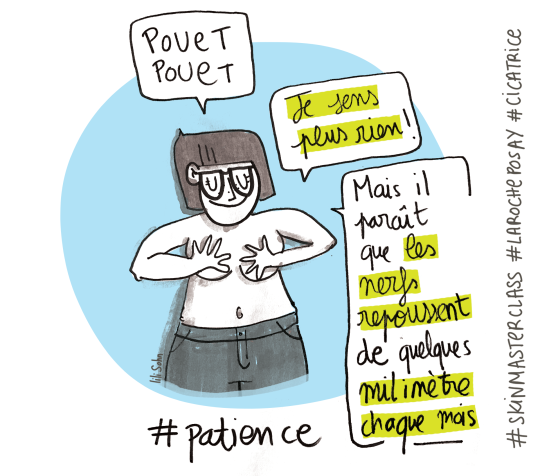 POUET
POUET
Je sens
plus rien!
Mais il
paraît
que les
nerfs
repoussent
de quelques
milimètre
chaque mois
lili Sohn
#patience
#SKINMASTERCLASS #LAROCHEPOSAY #CICATRICE